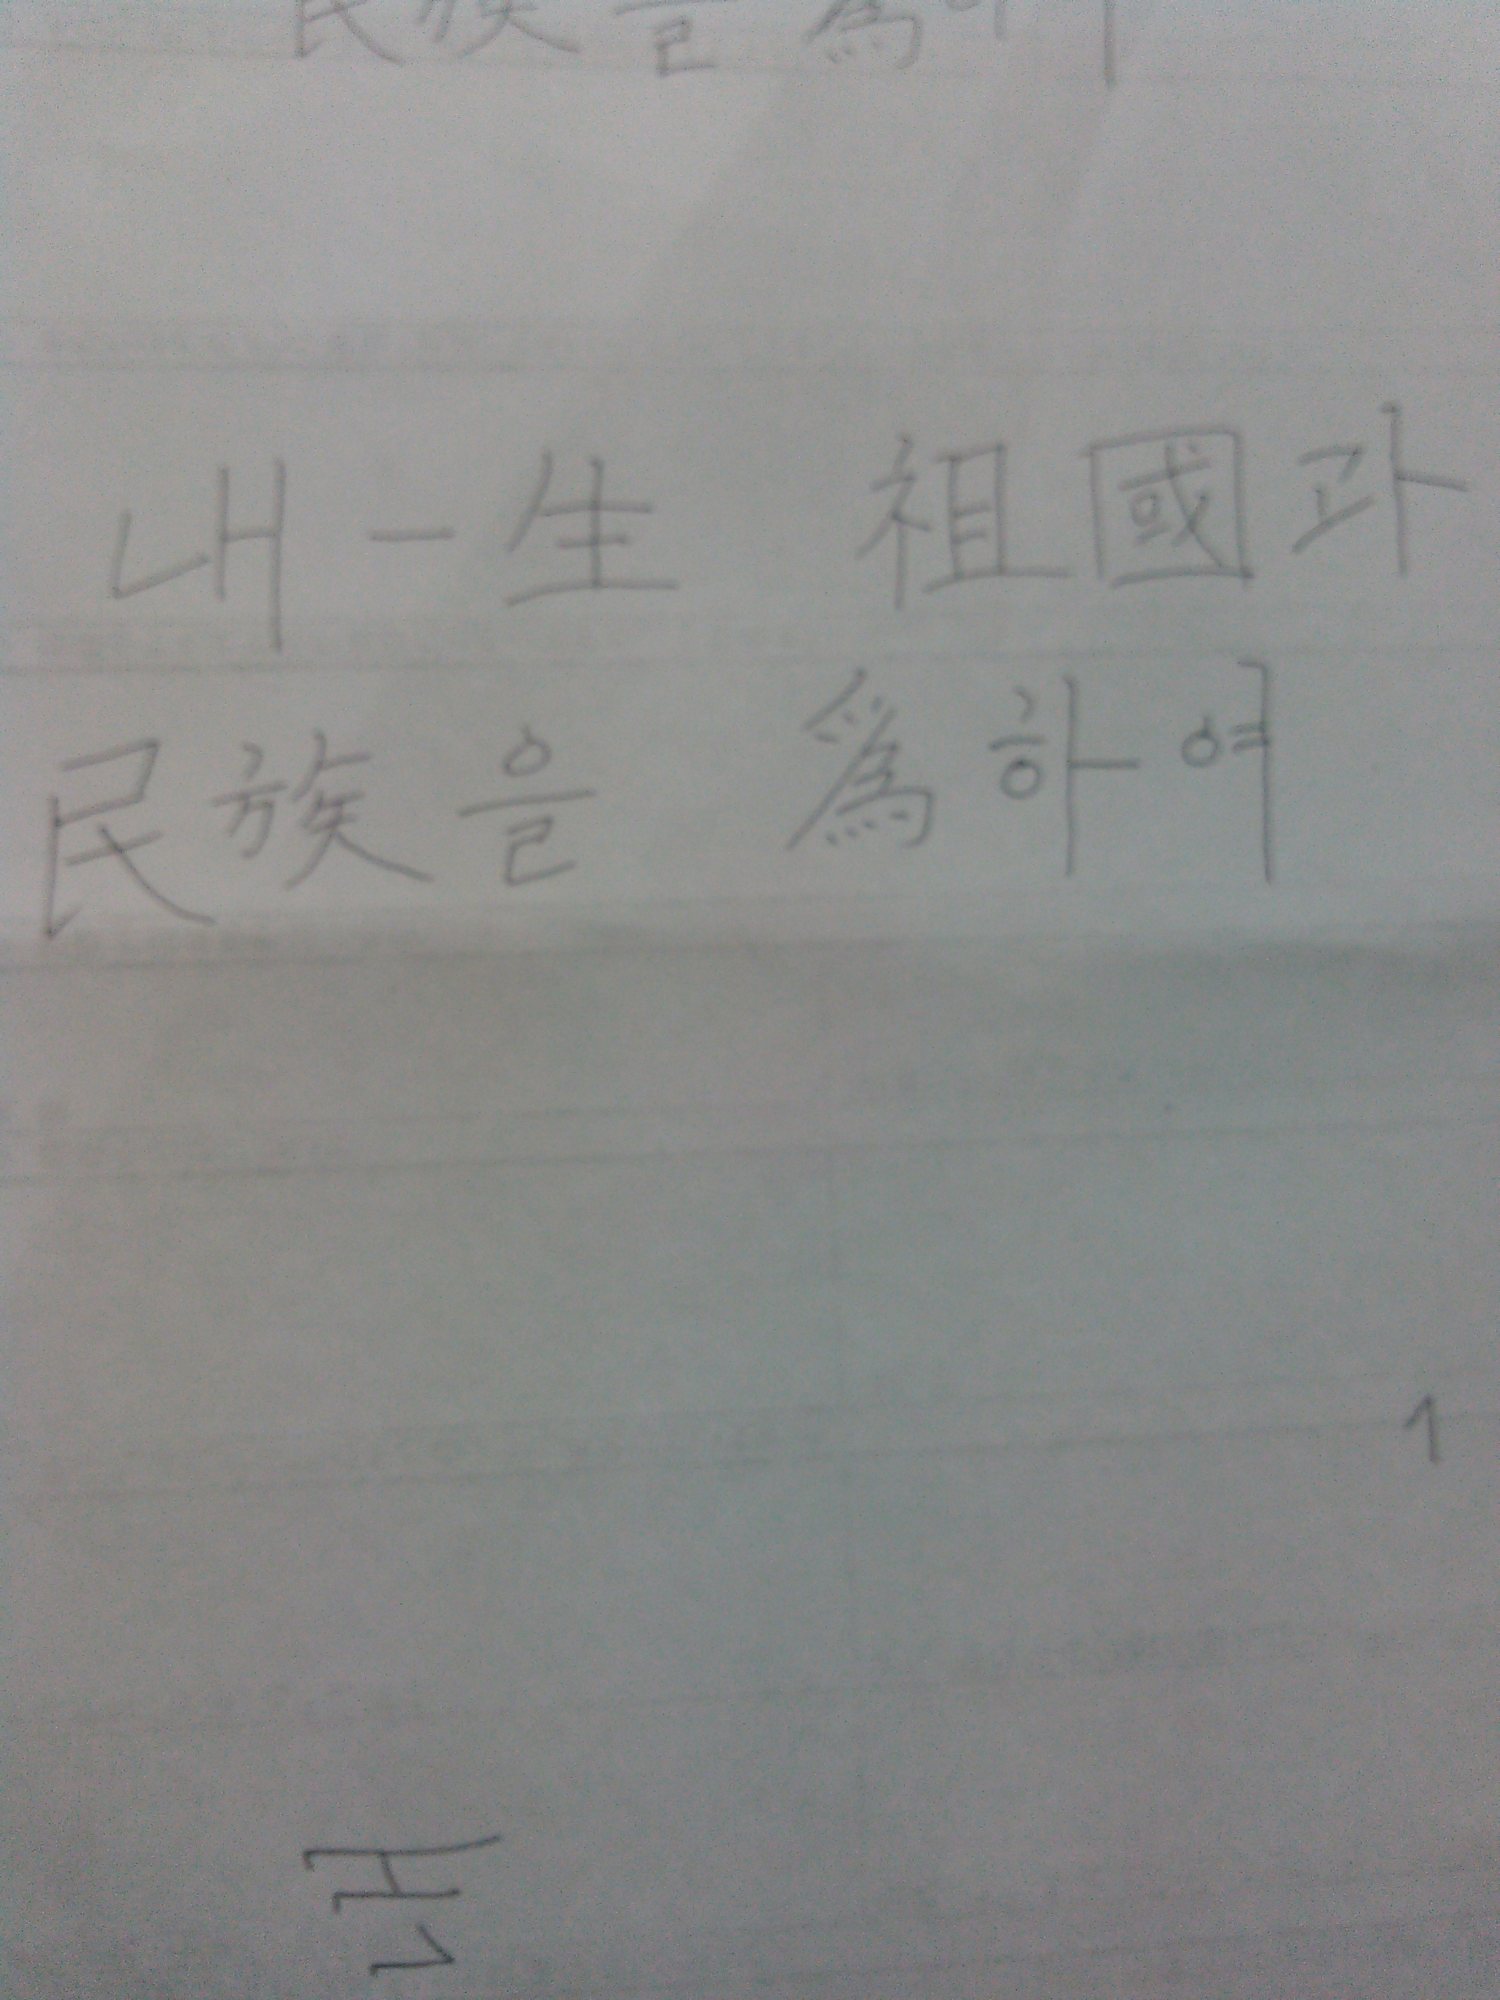 民族을 爲하여
내 一生 祖國과
民族을 爲하여
1
내